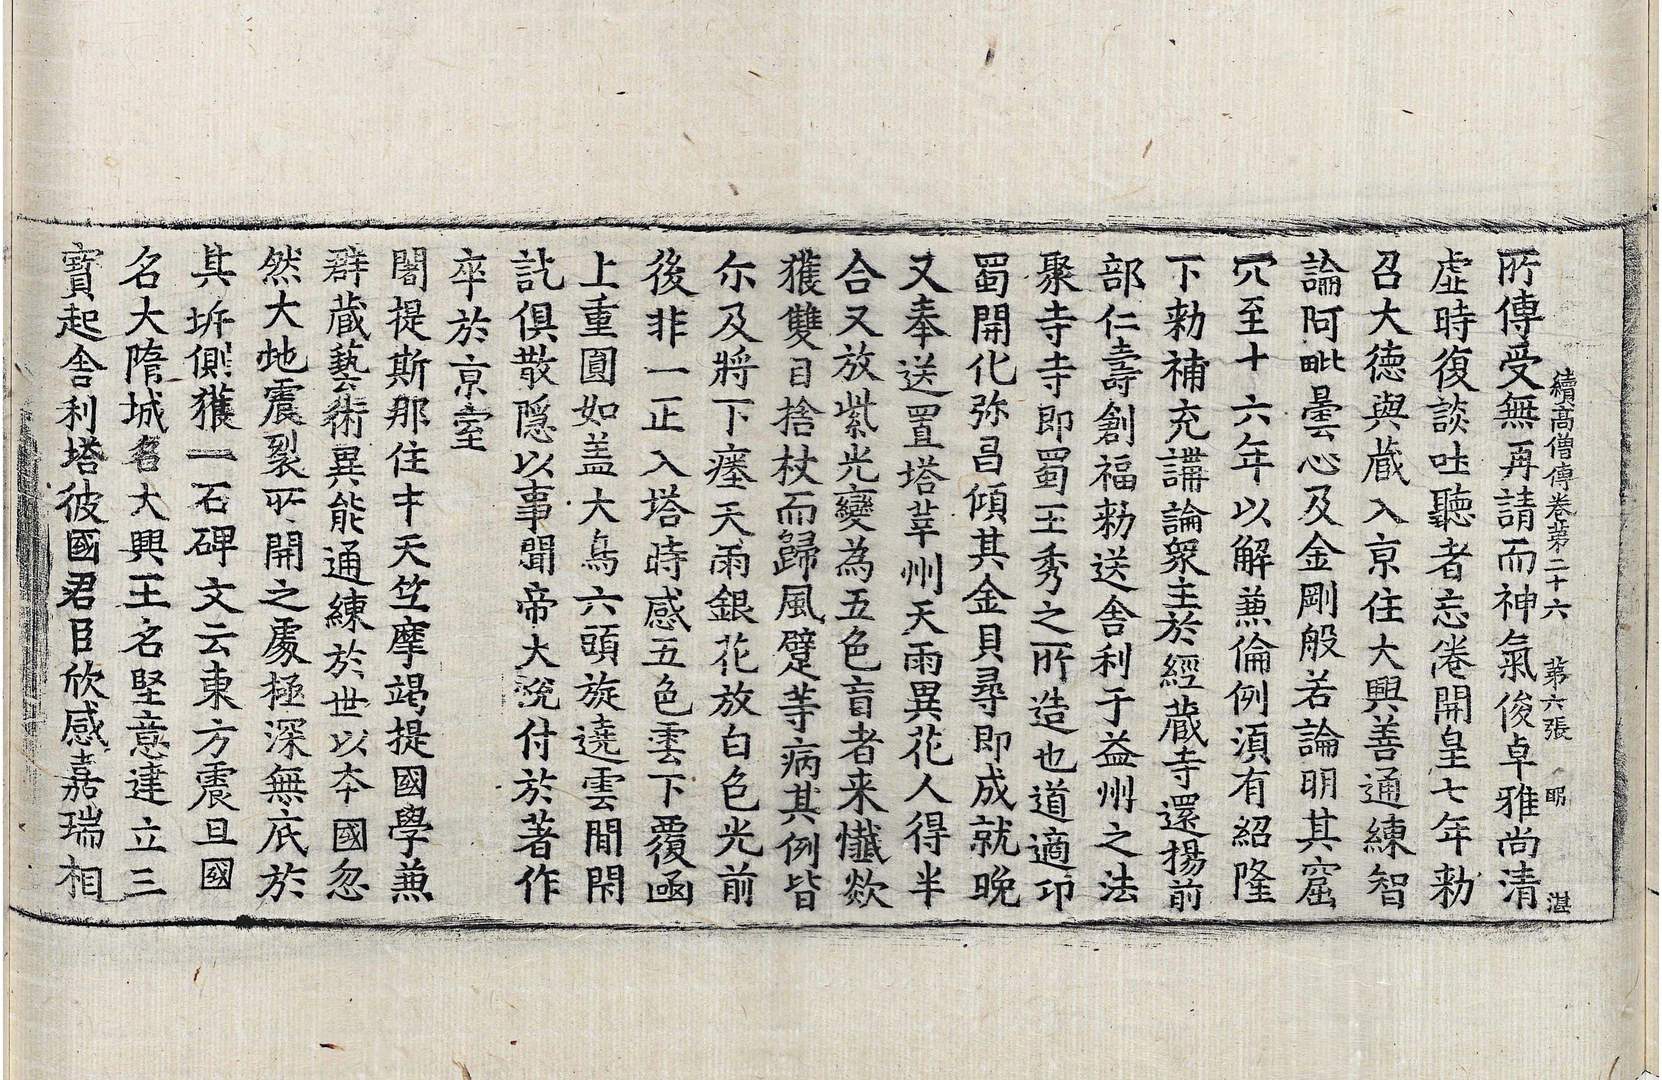 續高僧傳卷第二十六 第六張 明 湛
所傳受無再請而神氣俊卓雅尚清
虛時復談吐聽者忘倦開皇七年勑
召大德與藏入京住大興善通練智
論阿毗曇心及金剛般若論明其窟
穴至十六年以解兼倫例湏有紹隆
下勑補充講論衆主於經藏寺還揚前
部仁壽創福勑送舍利于益州之法
聚寺寺即蜀王秀之所造也道適邛
蜀開化弥昌傾其金貝尋即成就晚
又奉送置塔莘州天雨異花人得半
合又放紫光變為五色盲者来懺欻
獲雙目捨杖而歸風躄等病其例皆
尒及將下瘞天雨銀花放白色光前
後非一正入塔時感五色雲下覆函
上重圓如盖大鳥六頭旋遶雲間閇
訖俱散隱以事聞帝大悅付於著作
卒於京室
闍提斯那住中天竺摩竭提國學兼
群藏藝術異能通練於世以夲國忽
然大地震裂所開之處極深無底於
其圻側獲一石碑文云東方震旦國
名大隋城名大興王名堅意建立三
寶起舍利塔彼國君臣欣感嘉瑞相